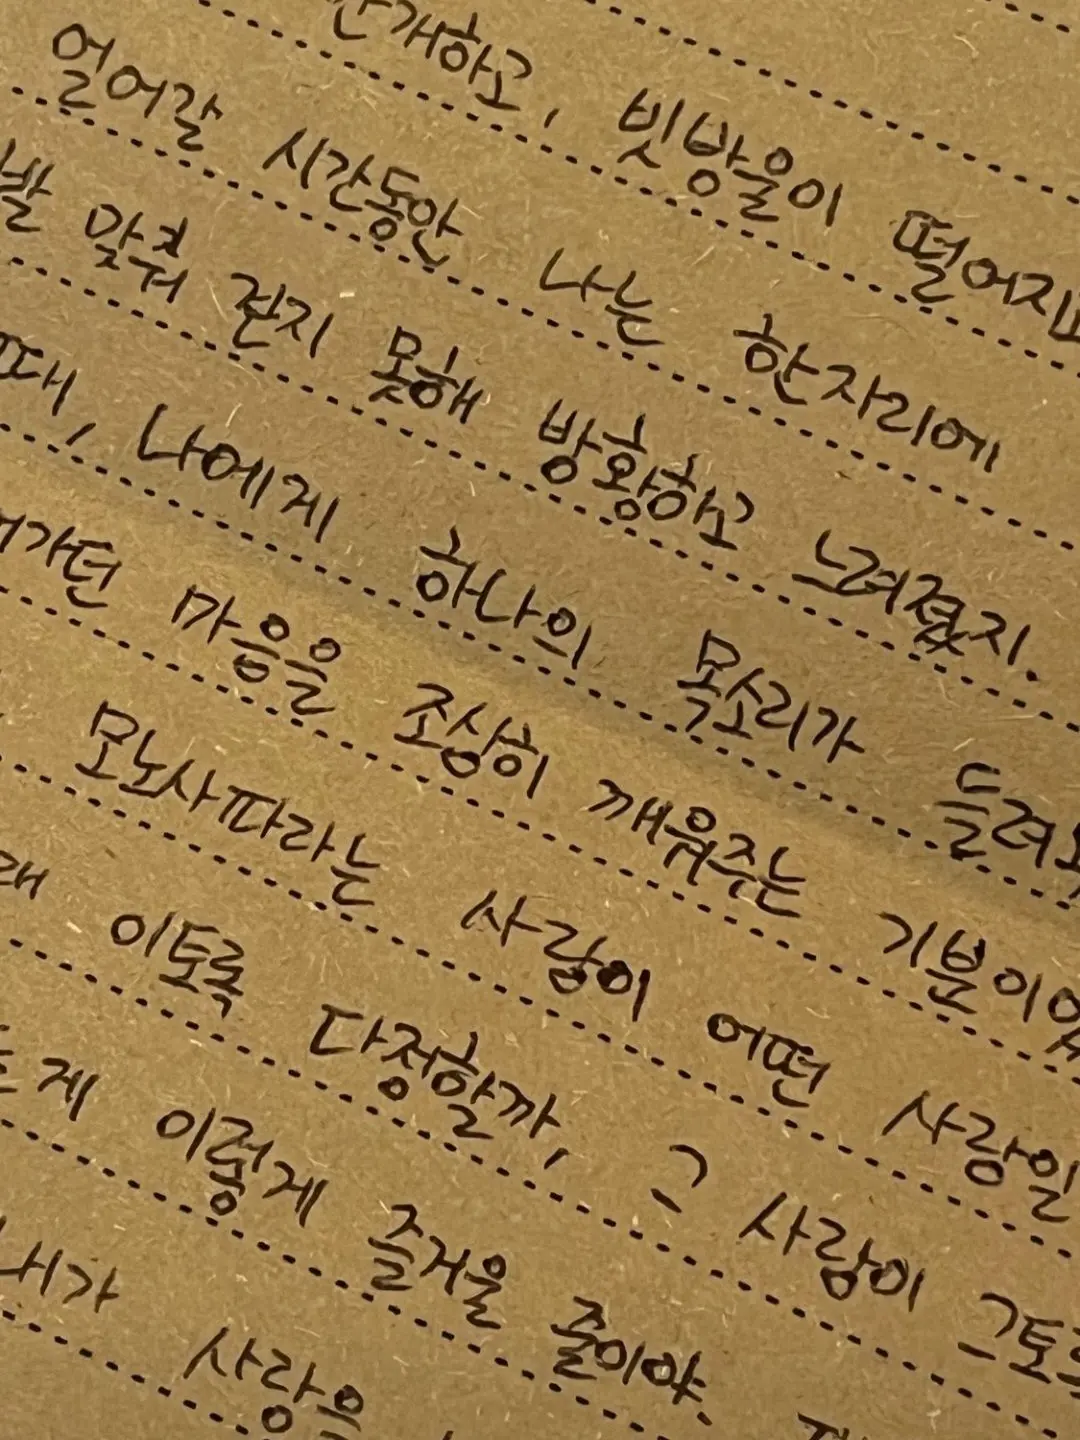 만개하고, 빗방울이 떨어지고
얼어갈 시간동안 나는 한자리에
발 맞춰 걷지 못해 방황하고 느려졌지.
때, 나에게 하나의 목소리가 들려와
가던 마음을 조심히 깨워주는 기분이었
모노사따라는 사람이 어떤 사람일
래 이토록 다정할까, 그 사람이 그토록
는게 이렇게 즐거울 줄이야.
내가 사랑을